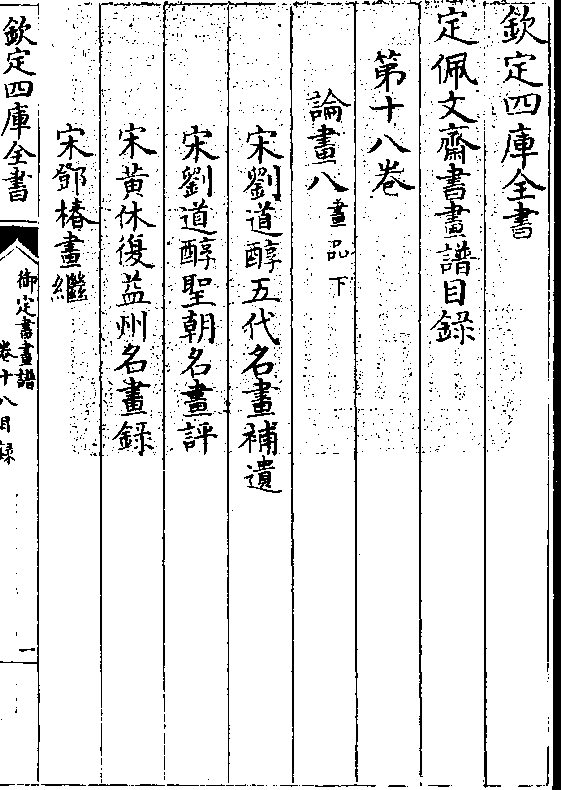 欽定四庫全書
定佩文齋書畫譜目錄
第十八卷
論畫八畫品下
宋劉道醇五代名畫補遺
宋劉道醇聖朝名畫評
宋黃休復益州名畫錄
宋鄧椿畫繼
欽定四庫全書
御定書畫譜
卷十八目錄
一